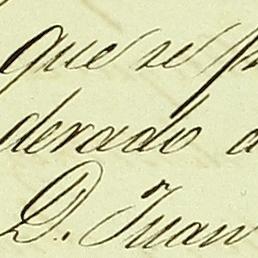 que se p
derado a
D. Juan